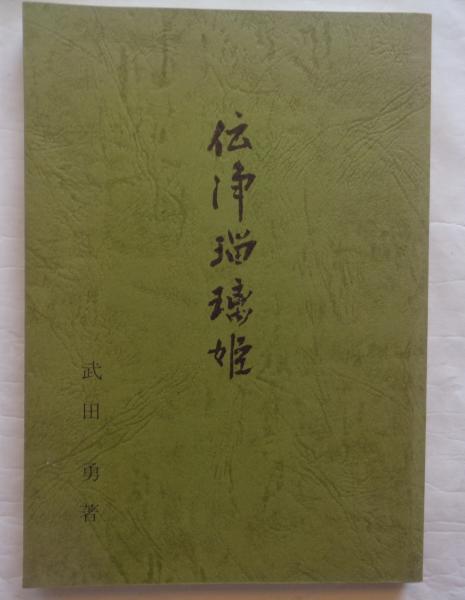 伝浄瑠璃姫
武田勇著